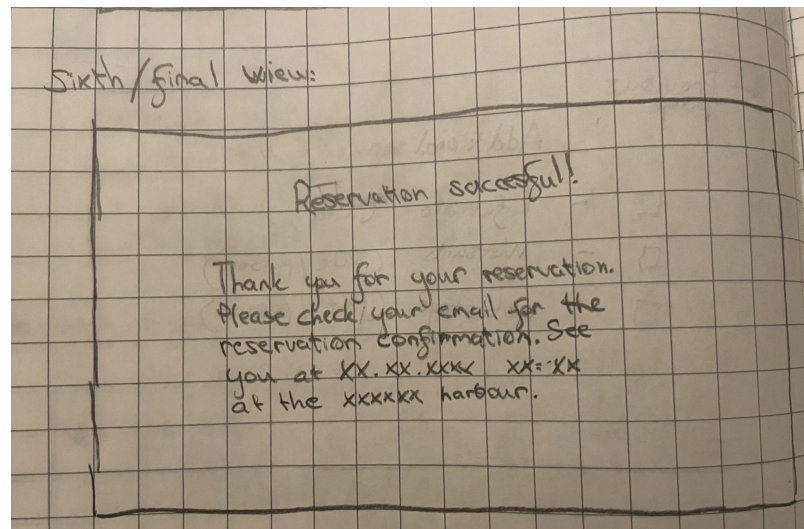 Sixth/final view:
Reservation succesful!
Thank you for your reservation.
Please check your email for the
reservation confirmation. See
you at XX.XX.XXXX XX:XX
at the xxxxxx harbour.